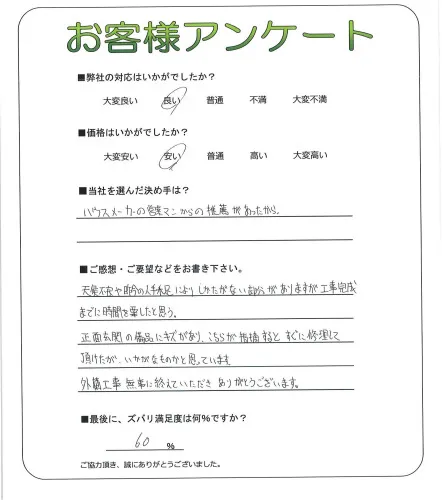 お客様アンケート
■弊社の対応はいかがでしたか?
大変良い 良い 普通 不満 大変不満
■価格はいかがでしたか?
大変安い 安い 普通 高い 大変高い
■当社を選んだ決め手は?
ハウスメーカーの営業マンからの推薦があったから。
■ご感想・ご要望などをお書き下さい。
天候不良や昨今の人手不足によりしかたがない部分がありますが工事完成
までに時間を要したと思う。
正面玄関の備品にキズがあり、こちらが指摘するとすぐに修理して
頂けたが、いかがなものかと思っています
外構工事無事に終えていただきありがとうございます。
■最後に、ズバリ満足度は何%ですか?
60 %
ご協力頂き、誠にありがとうございました。